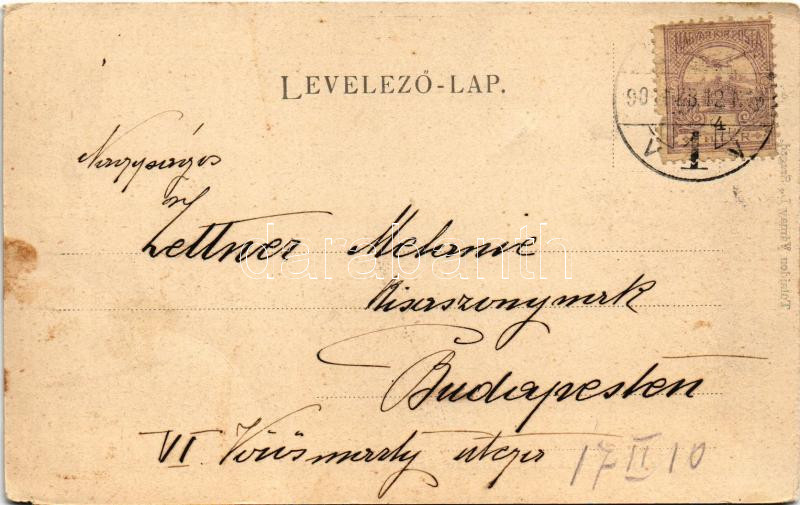 LEVELEZŐ-LAP.
MAGYAR KIR. POSTA
Nagyságos
Zettner Melanie
Kisasszonynak
Budapesten
VI Vörösmarty utcza
17 II 10
darabanth